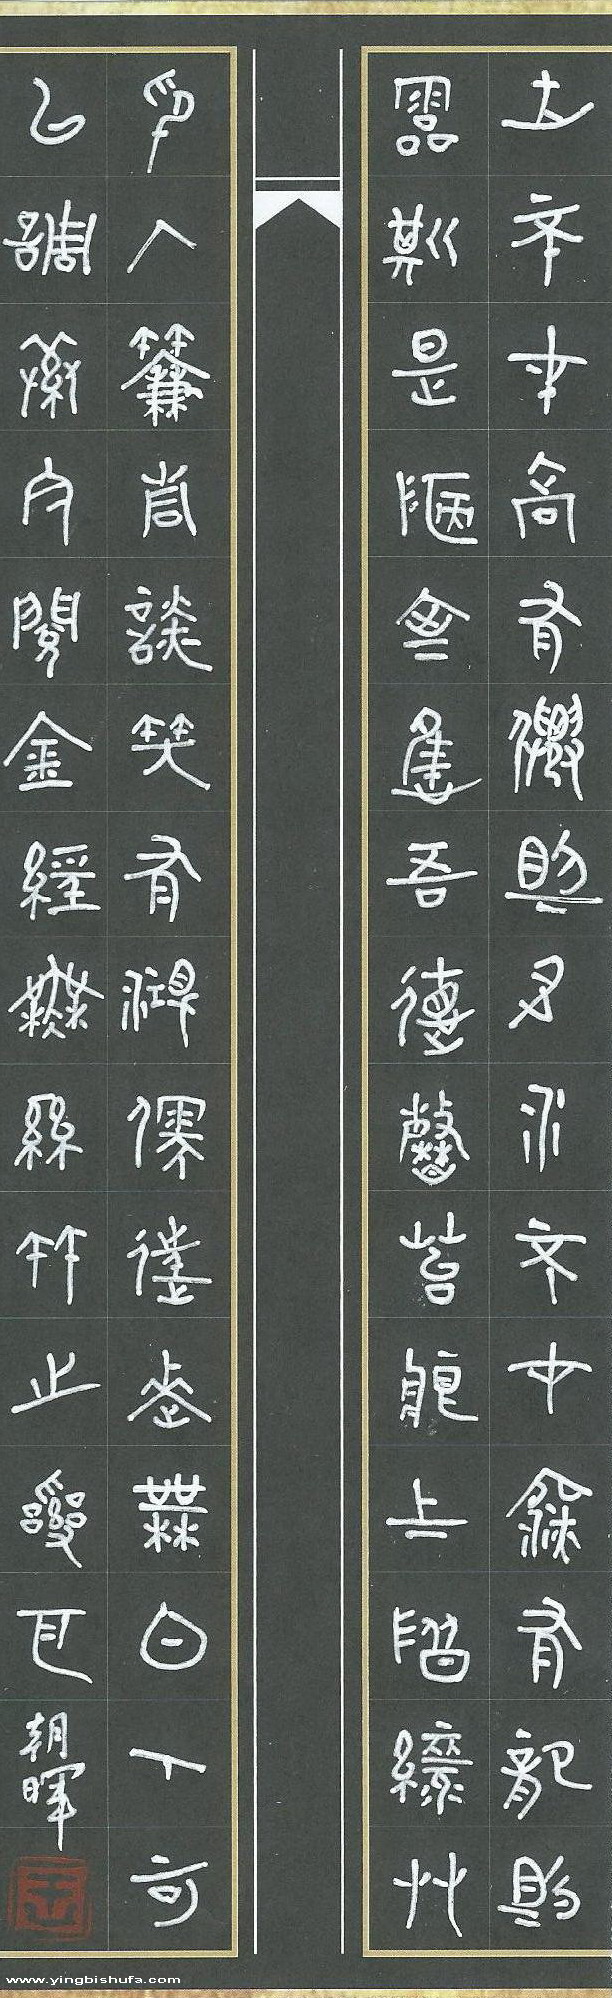 山不在高有僊則名水不在深有龍則
靈斯是陋室惟吾德馨苔痕上階綠艸
色入簾青談笑有鴻儒往來無白丁可
以調素琴閱金經無絲竹之亂耳
朝暉
www.yingbishufa.com